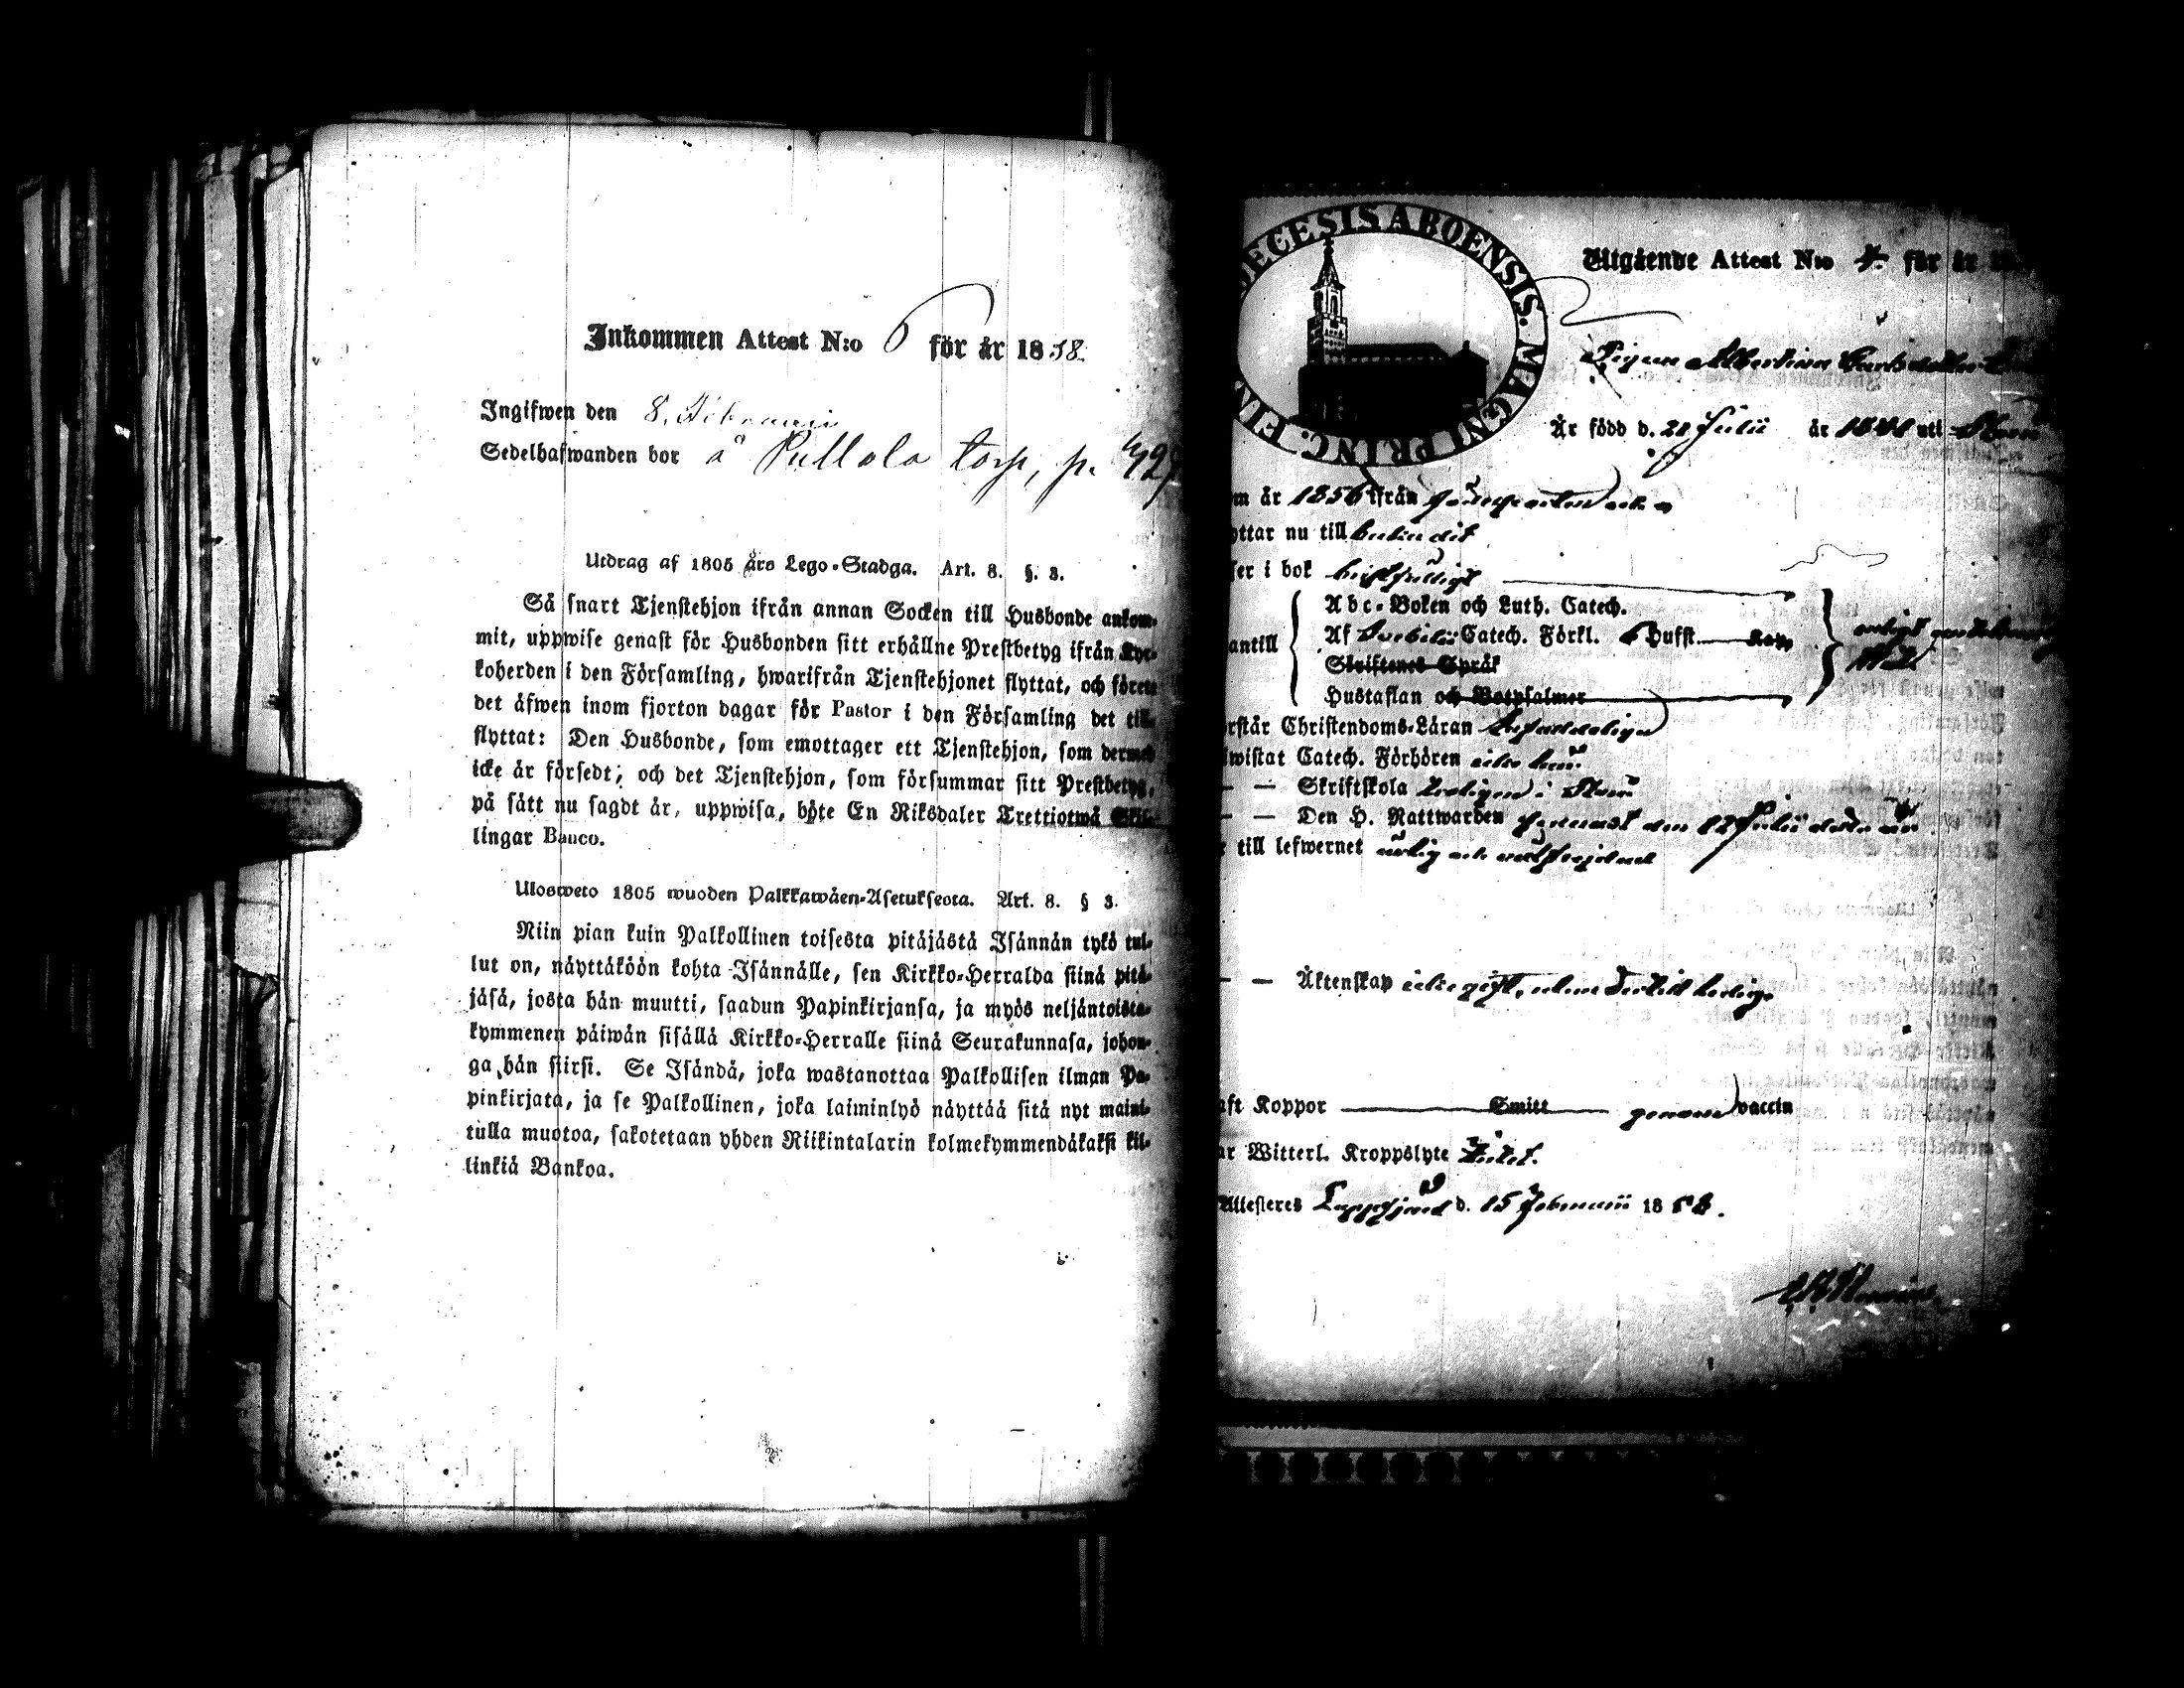 Inkommen Attest N:o 6 för år 1858.
Ingifwen den 8. Februarii
Sedelhafwanden bor å Pullola torp, p. 429
Utdrag af 1805 års Lego-Stadga. Art. 8. §. 3.
Så snart Tjenstehjon ifrån annan Socken till Husbonde ankom-
mit, uppwise genast för Husbonden sitt erhållne Prestbetyg ifrån Kyr-
koherden i den Församling, hwarifrån Tjenstehjonet flyttat, och förete
det äfwen inom fjorton dagar för Pastor i den Församling det till-
flyttat: Den Husbonde, som emottager ett Tjenstehjon, som dermed
icke är försedt; och det Tjenstehjon, som försummar sitt Prestbetyg,
på sätt nu sagdt är, uppwisa, böte En Riksdaler Trettiotwå Skil-
lingar Banco.
Ulosweto 1805 wuoden Palkkawäen-Asetuksesta. Art. 8. § 3.
Niin pian kuin Palkollinen toisesta pitäjästä Isännän tykö tul-
lut on, näyttäköön kohta Isännälle, sen Kirkko-Herralda siinä pitä-
jäsä, josta hän muutti, saadun Papinkirjansa, ja myös neljäntoista-
kymmenen päiwän sisällä Kirkko-Herralle siinä Seurakunnasa, johon-
ga hän siirsi. Se Isändä, joka wastanottaa Palkollisen ilman Pa-
pinkirjata, ja se Palkollinen, joka laiminlyö näyttää sitä nyt maini-
tulla muotoa, sakotetaan yhden Riikintalarin kolmekymmendäkaksi kil-
linkiä Bankoa.
DIECESIS ABOENSIS. MAGNI PRINC. FIN
Utgående Attest N:o 4. för år
Pigan Albertina Carlsdotter
Är född d. 21 Julii år 1841 uti
om år 1856 ifrån
yttar nu till
ser i bok
antill
Abc-Boken och Luth. Catech.
Af Svebelii Catech. Förkl. 6 Hufst. Kap.
Skriftenes Språk
Hustaflan och Botpsalmer
rstår Christendoms-Läran
iwistat Catech. Förhören
— — Skriftskola
— — Den H. Nattwarden senast den 12 Julii
r till lefwernet ärlig och
— — Äktenskap icke gift, utan dertill ledig.
aft Koppor Smitt genom vaccin
ar Witterl. Kroppslyte Intet.
Attesteres Lappfjerd d. 15 Februarii 1858.